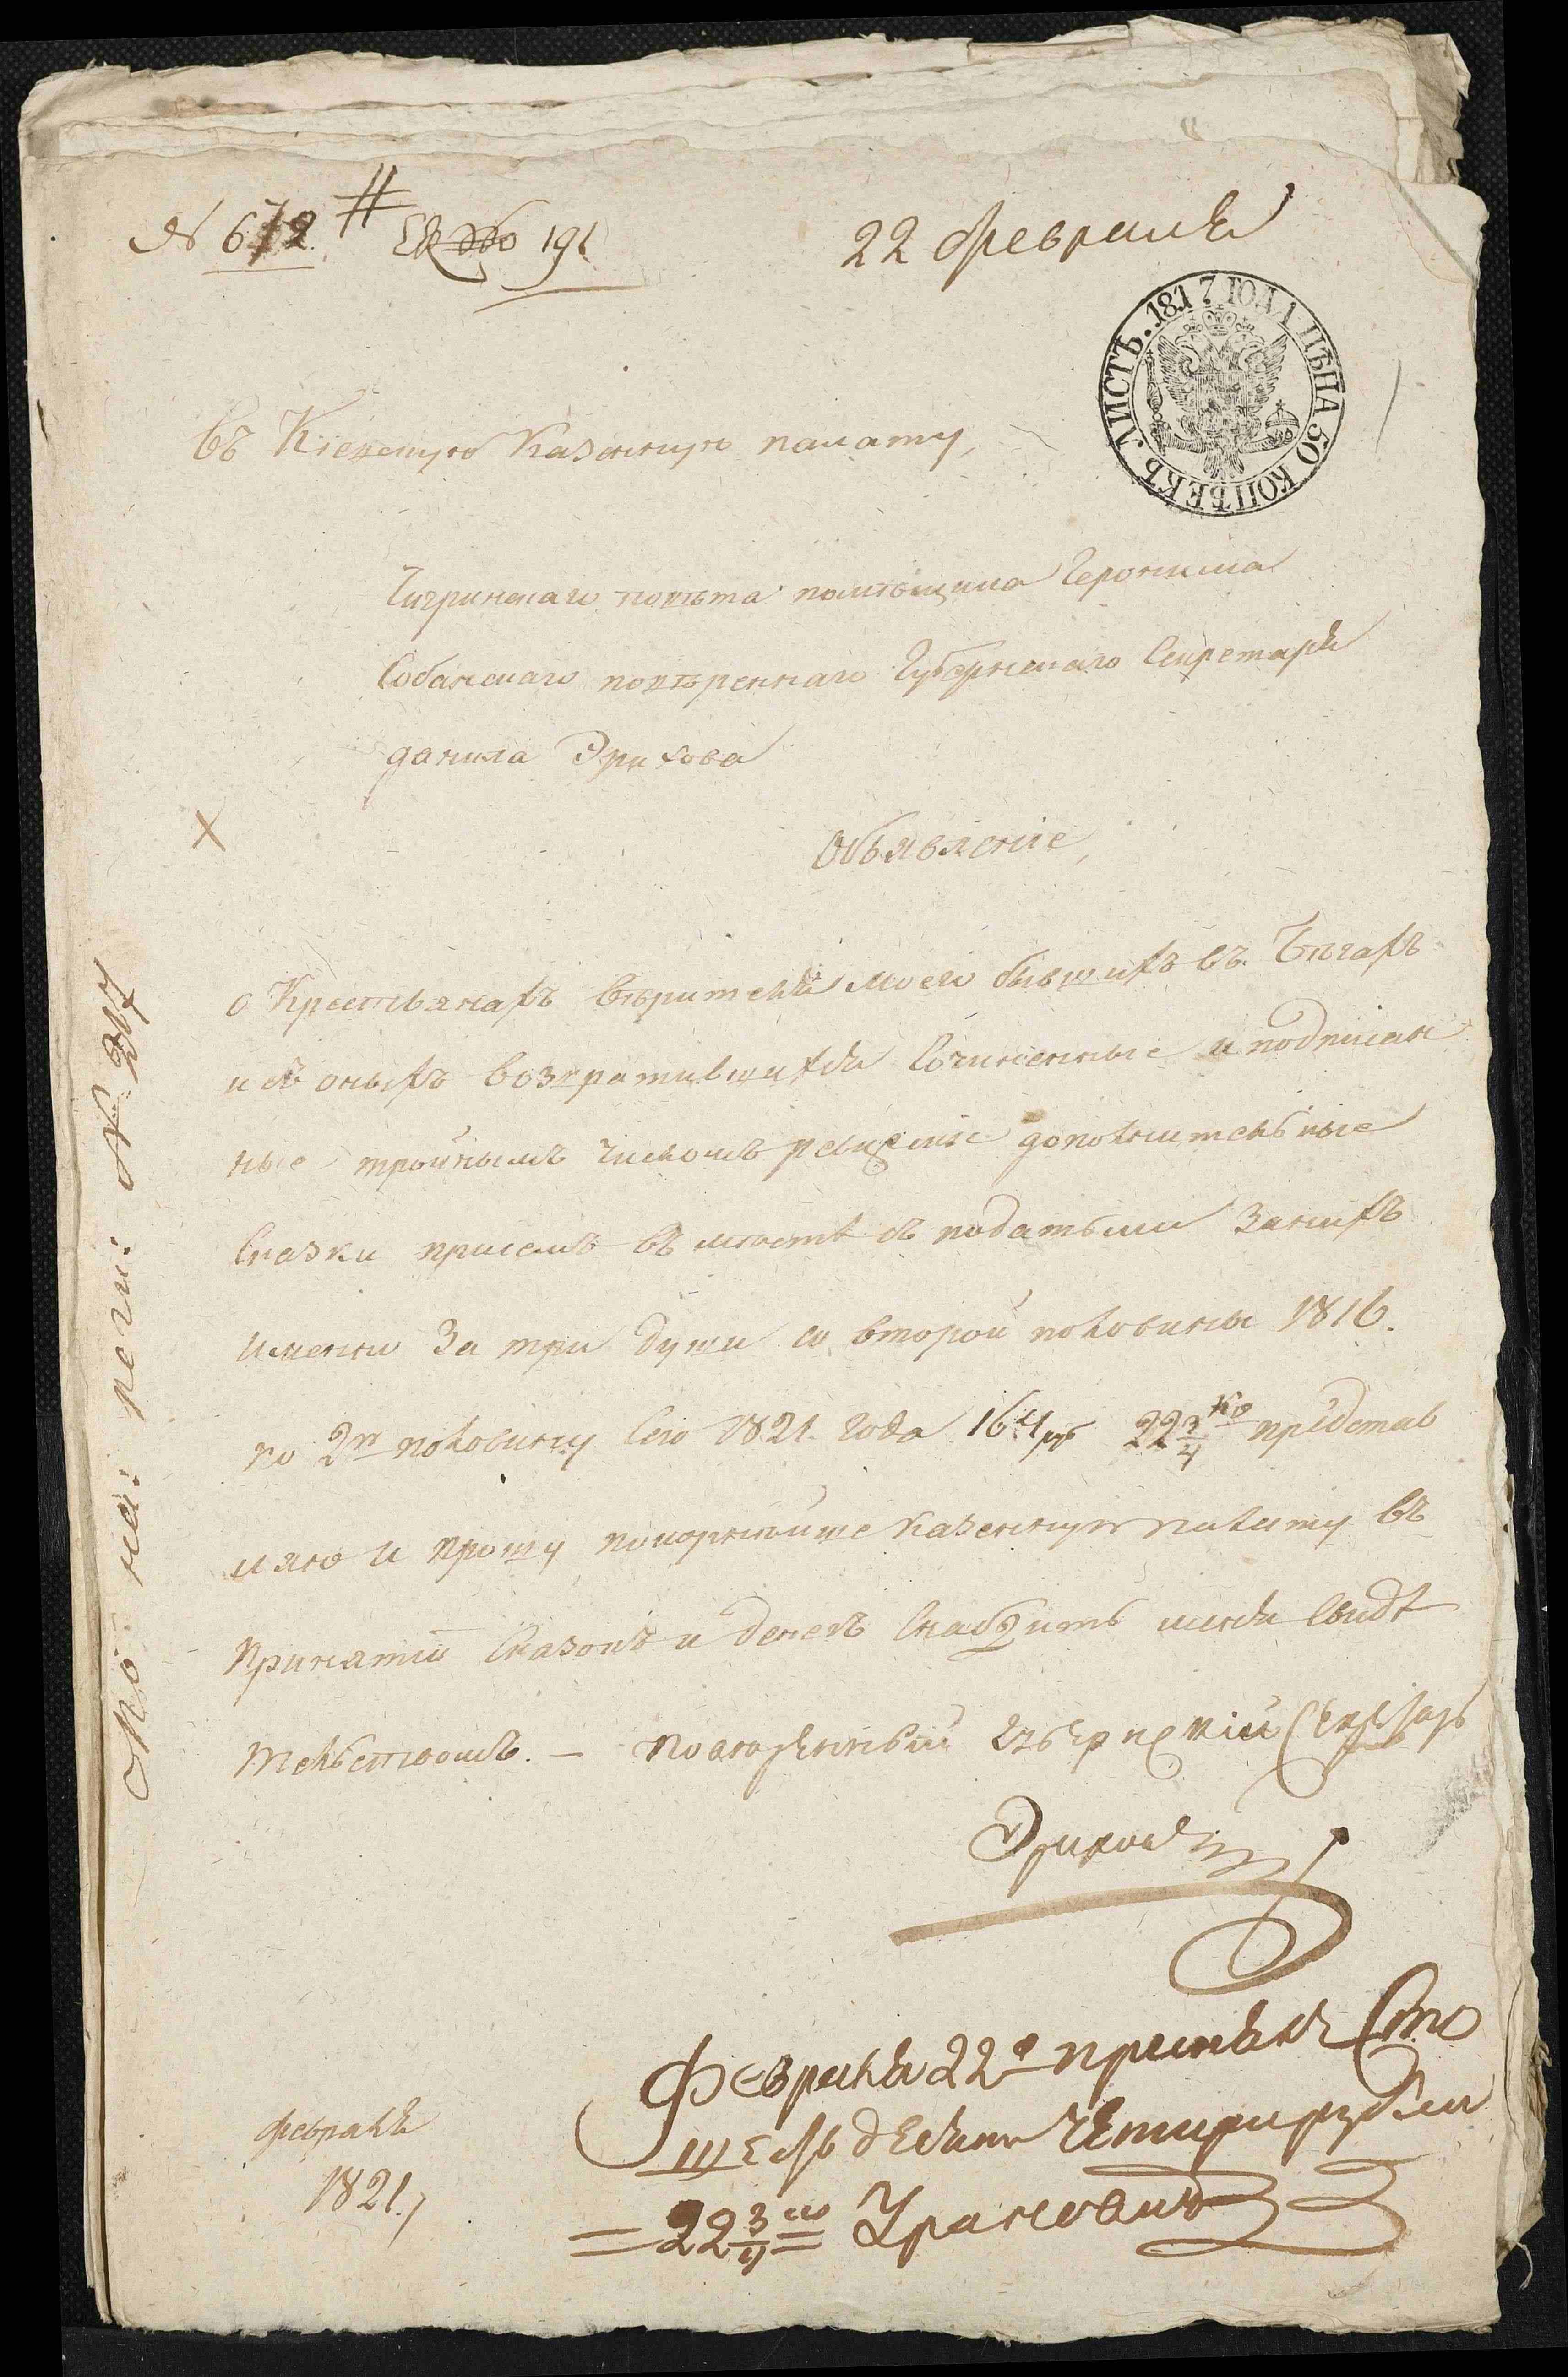 № 672.
191
22 февраля
ЛИСТЪ. 1817 ГОДА ЦѢНА 50 КОПѢЕКЪ.
въ Кіевскую Казенную палату,
Чигринскаго повѣта помѣщика Іеронима
Собанскаго повѣреннаго Губернскаго Секретаря
данила Эрихова
Объявленіе,
о Крестьянахъ вѣрителя моего бывшихъ въ бѣгахъ
и съ оныхъ возвратившихся Сочиненные и подписан
ные тройнымъ числомъ ревизские дополнительные
Сказки при семъ въ мѣсте съ податьми за нихъ
именно За три души со второй половины 1816.
по 2ю половину Сего 1821. года 164 ру 22 3/4 ко представ
ляю и прошу покорнѣйше казенную палату въ
принятіи Сказокъ и денегъ Снабдить меня Свидѣ
тельствомъ. — повѣренный губернский Секретарь
Эрихов
Февраля 22го принялъ Сто
шесть десятъ четири рубли
= 22 3/4 ко =
февраля
1821.
По на: реги: №